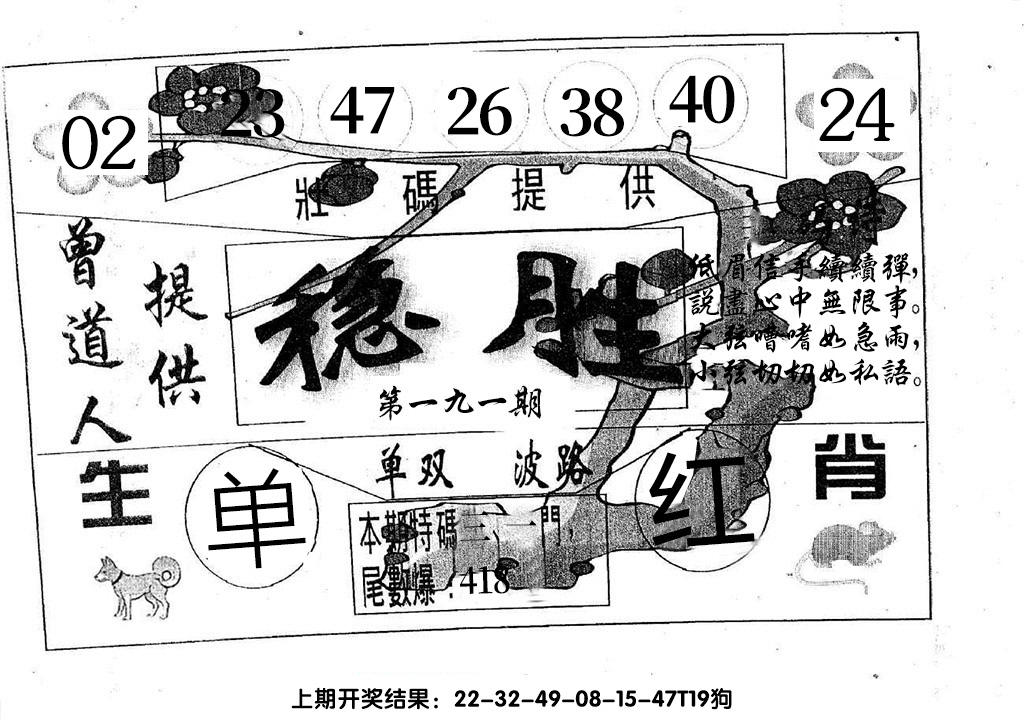 02 23 47 26 38 40 24
壯碼提供
特
曾道人
提供
穩胜
第一九一期
低眉信手續續彈，
説盡心中無限事。
大弦嘈嘈如急雨，
小弦切切如私語。
单双 波路
生肖
单
红
本期特碼三、一門，
尾數爆：418
上期开奖结果：22-32-49-08-15-47T19狗